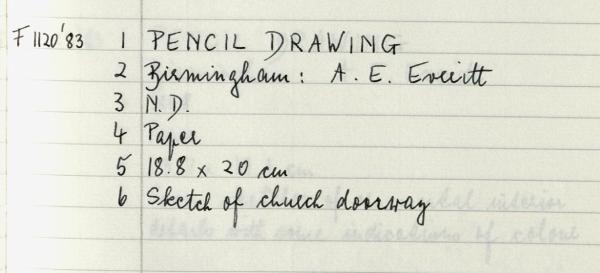 F1120'83 1 PENCIL DRAWING
2 Birmingham: A. E. Everitt
3 N.D.
4 Paper
5 18.8 x 20 cm
6 Sketch of church doorway